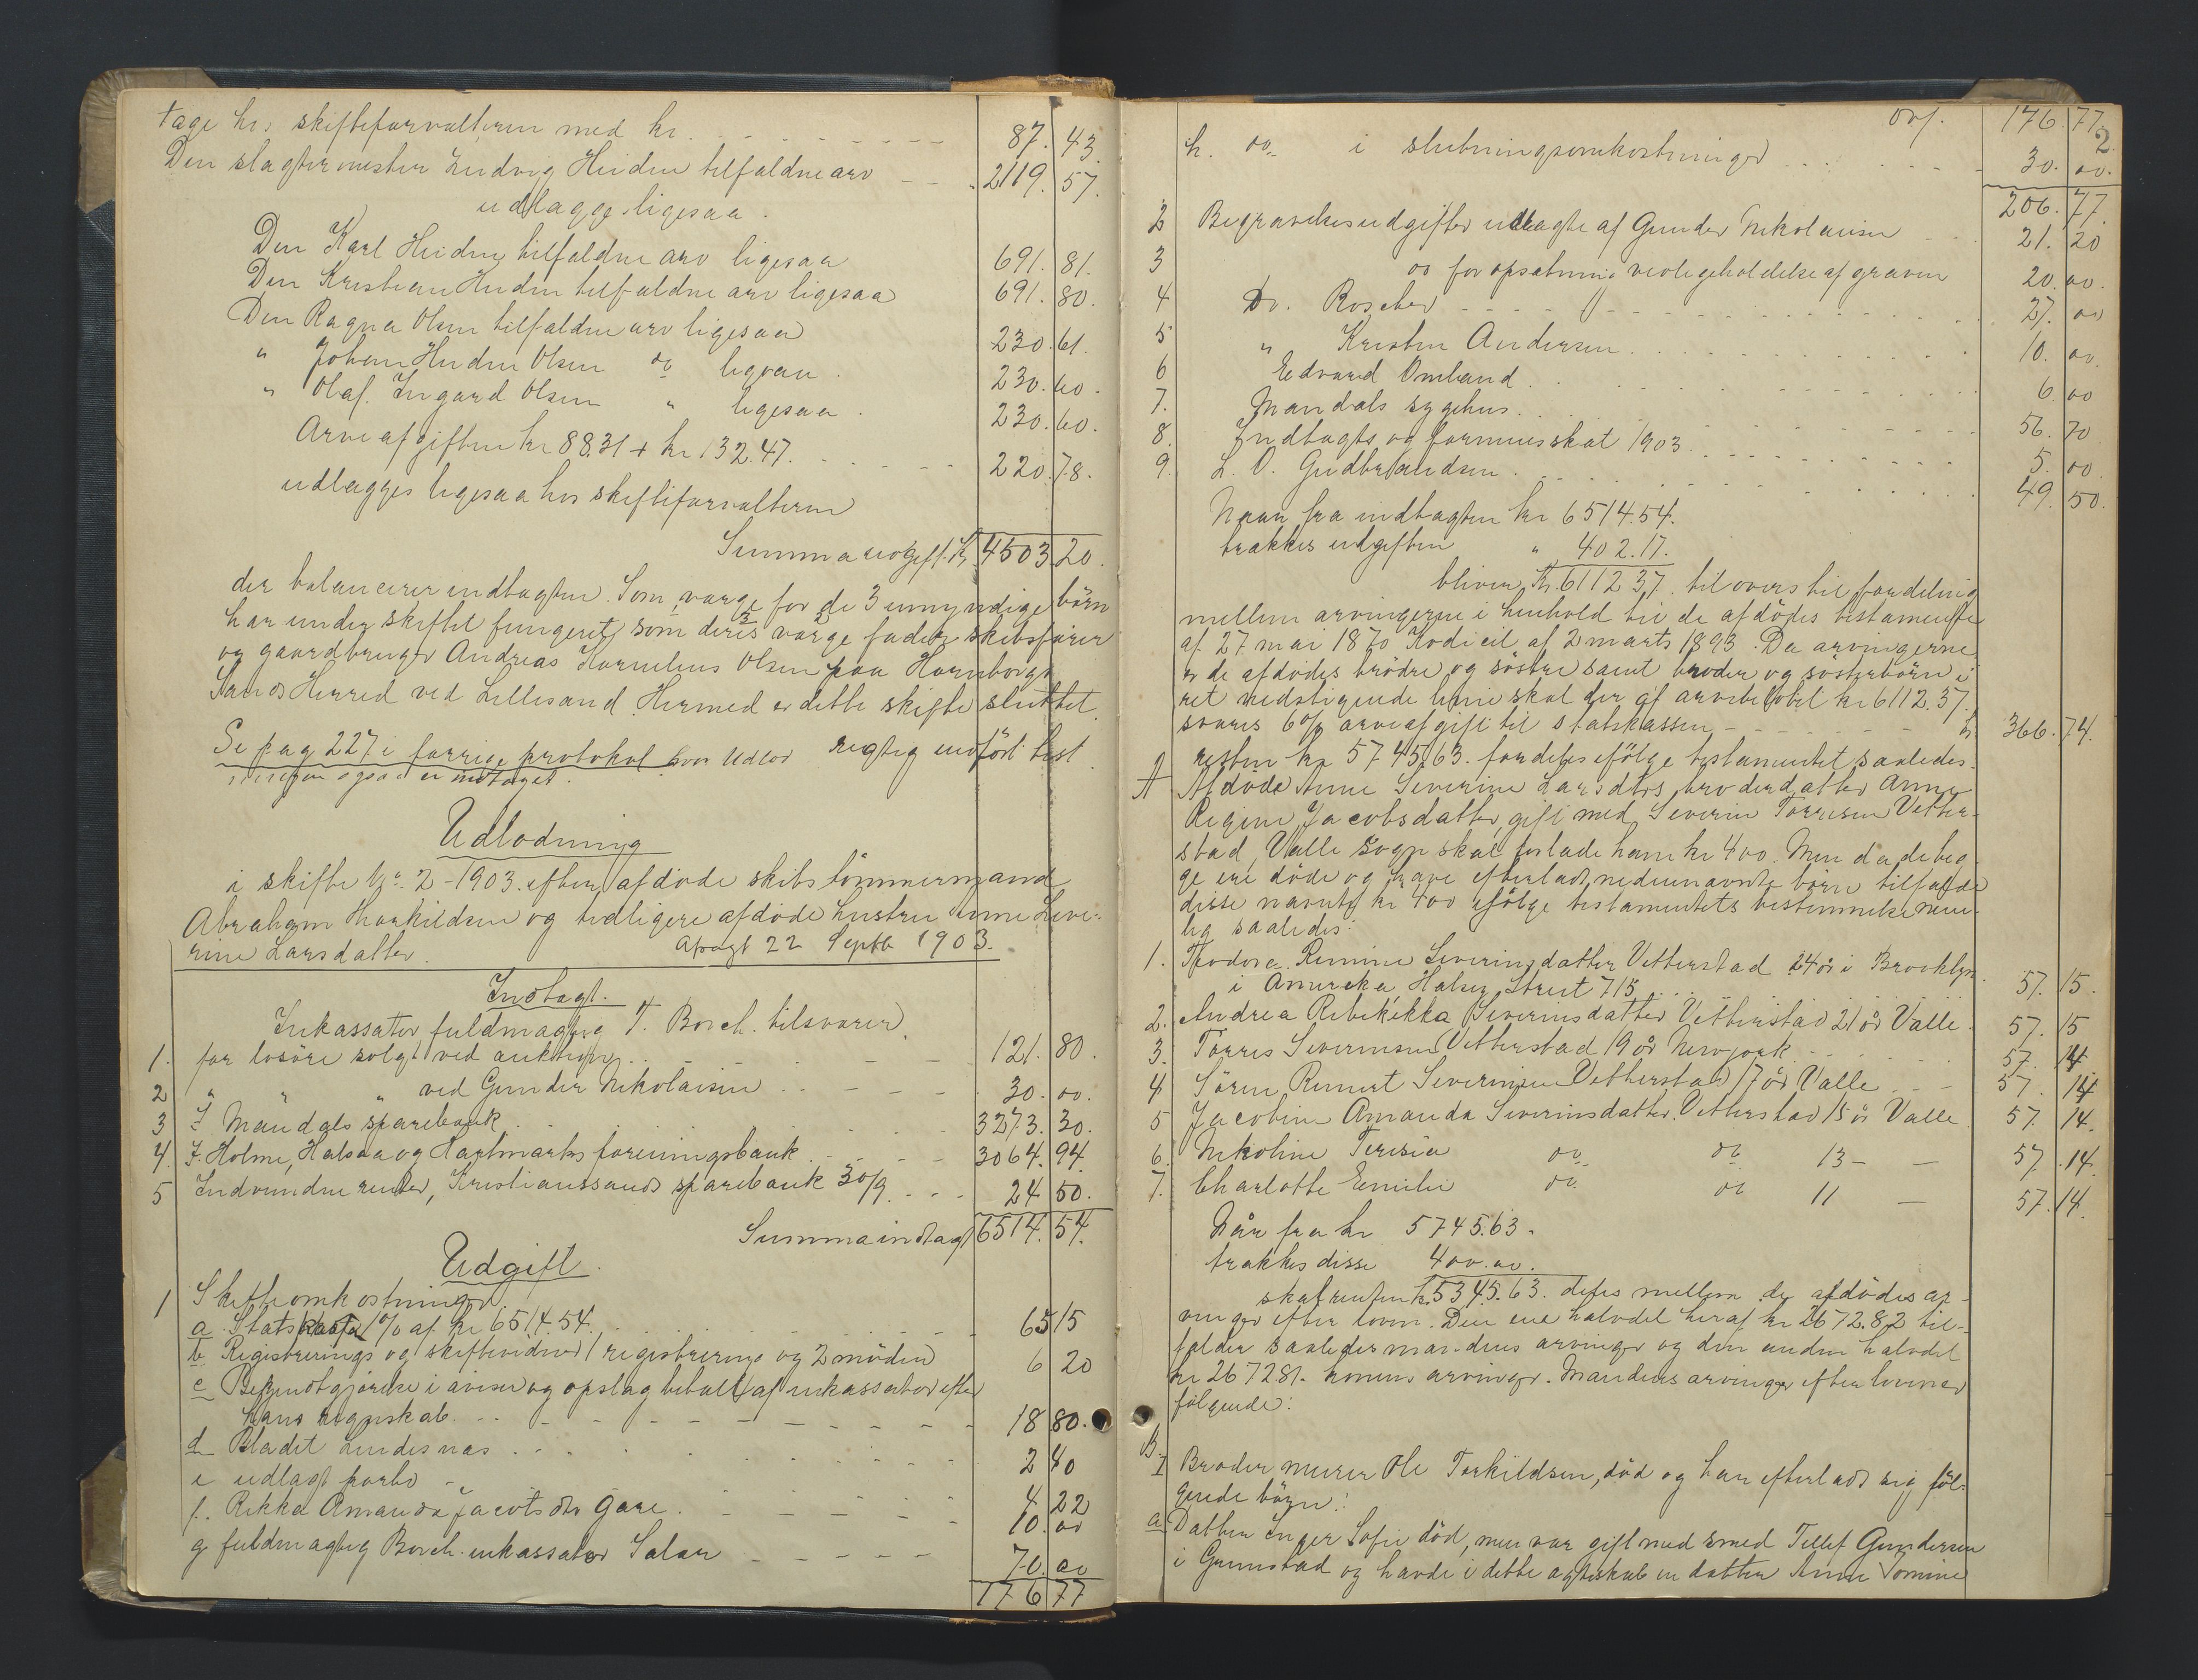 tage hos skifteforvalteren med kr. 87. 43.
Den slagtermester Ludvig Heiden tilfaldne arv 2119. 57.
udlægges ligesaa.
Den Karl Heiden tilfaldne arv ligesaa 691. 81.
Den Kristian Heiden tilfaldne arv ligesaa 691. 80.
Den Ragna Olsen tilfaldne arv ligesaa 230. 61.
" Johan Heiden Olsen do ligesaa. 230. 60.
" Olaf Ingard Olsen " ligesaa. 230. 60.
Arveafgiften kr 88.31 + kr 132.47. 220. 78.
udlægges ligesaa hos skifteforvalteren
Summa udgift. Kr 4503. 20.
der balancerer indtægten. Som værge for de 3 umyndige börn
har under skiftet fungeret som deres værge faderen skibsförer
og gaardbruger Andreas Kornelius Olsen paa Hornborg
Sands Herred ved Lillesand. Hermed er dette skifte sluttet.
Se pag 227 i forrige protokol hvor Udlod rigtig indfört test
også er indtaget.
Udlodning
i skifte No. 2 - 1903 efter afdöde skibstömmermand
Abraham Thorkildsen og tidligere afdöde hustru Anne Seve-
rine Larsdatter. Afsagt 22 Septb 1903.
Indtægt.
Inkassator fuldmægtig T. Borch. tilsvarer.
1. for lösöre solgt ved auktion 121. 80.
2 " " " ved Gunder Nikolaisen 30. 00.
3 I Mandals sparebank 3273. 30.
4. I Holme, Halsaa og Hartmarks foreningsbank 3064. 94.
5 Indvundne renter, Kristianssands sparebank 30/9 24 50.
Summa indtægt 6514. 54.
Udgift.
1 Skifteomkostninger.
a. Statskassen 1% af kr 6514.54. 65 15
b Registrerings og skiftevidner 1 registrering og 2 möder 6 20
c Bekjendtgjörelse i aviser og opslag betalt af inkassator efter
hans regnskab. 18 80.
d Bladet Lindesnæs 2 40
e udlagt porto 4 22
f. Rikka Amanda Jacobsdtr Gare. 10. 00
g fuldmægtig Borch inkassator Salær 70. 00
176 77
ovf. 176. 77.
2
h. do i slutningsomkostninger 30. 00.
206. 77.
2 Begravelsesudgifter udlagte af Gunder Nikolaisen 21. 20
3 do for opsætning vedligeholdelse af graven 20. 00.
4 Dr. Roscher 27. 00
5 " Kristen Andersen 10. 00
6 Edvard Omland 6. 00
7. Mandals sygehus 56. 70
8. Indtægts og formuesskat 1903 5. 00
9. L. O. Gudbrandsen 49. 50.
Naar fra indtægten kr 6514.54.
trækkes udgiften " 402.17.
bliver Kr. 6112 37. tilovers til fordeling
mellem arvingerne i henhold til de afdödes testamente
af 27 mai 1870 Kodicil af 2 marts 1893. Da arvingerne
er de afdödes brödre og söstre samt broder og sösterbörn i
ret nedstigende linie skal der af arvebelöbet kr 6112.37.
svares 6% arveafgift til statskassen kr 366. 74.
resten kr 5745.63. fordeles ifölge testamentet saaledes.
A Afdöde Anne Severine Larsdtrs broderdatter Anne
Regine Jacobsdatter, gift med Severin Torresen Vetter-
stad, Valle Sogn skal forlods have kr 400. Men da de beg-
ge ere döde og have efterladt nedennævnte börn tilfalder
disse nævnte kr 400 ifölge testamentets bestemmelse nem-
lig saaledes:
1. Teodora Remine Severinsdatter Vetterstad 24 år i Brooklyn
i Amerika Halsey Street 715 57. 15.
2. Andrea Rebekka Severinsdatter Vetterstad 21 år Valle 57. 15
3. Torres Severinsen Vetterstad 19 år Newyork 57. 14
4 Sören Reinert Severinsen Vetterstad 17 år Valle 57. 14
5 Jacobine Amanda Severinsdatter Vetterstad 15 år Valle 57. 14.
6. Nikoline Teresia do do 13 – – 57. 14.
7. Charlotte Emilie do do 11 – 57. 14.
Når fra kr 5745.63.
trækkes disse 400.00.
skal resten kr. 5345.63. deles mellem de afdödes ar-
vinger efter loven. Den ene halvdel heraf kr 2672.82 til-
falder saaledes mandens arvinger og den anden halvdel
kr 2672.81. konens arvinger. Mandens arvinger efter loven er
fölgende:
B.
I Broder murer Ole Torkildsen, död og har efterladt sig föl-
gende börn:
a Datter Inger Sofie död, men var gift med smed Tellef Gundersen
i Grimstad og havde i dette ægteskab en datter Anne Tomine